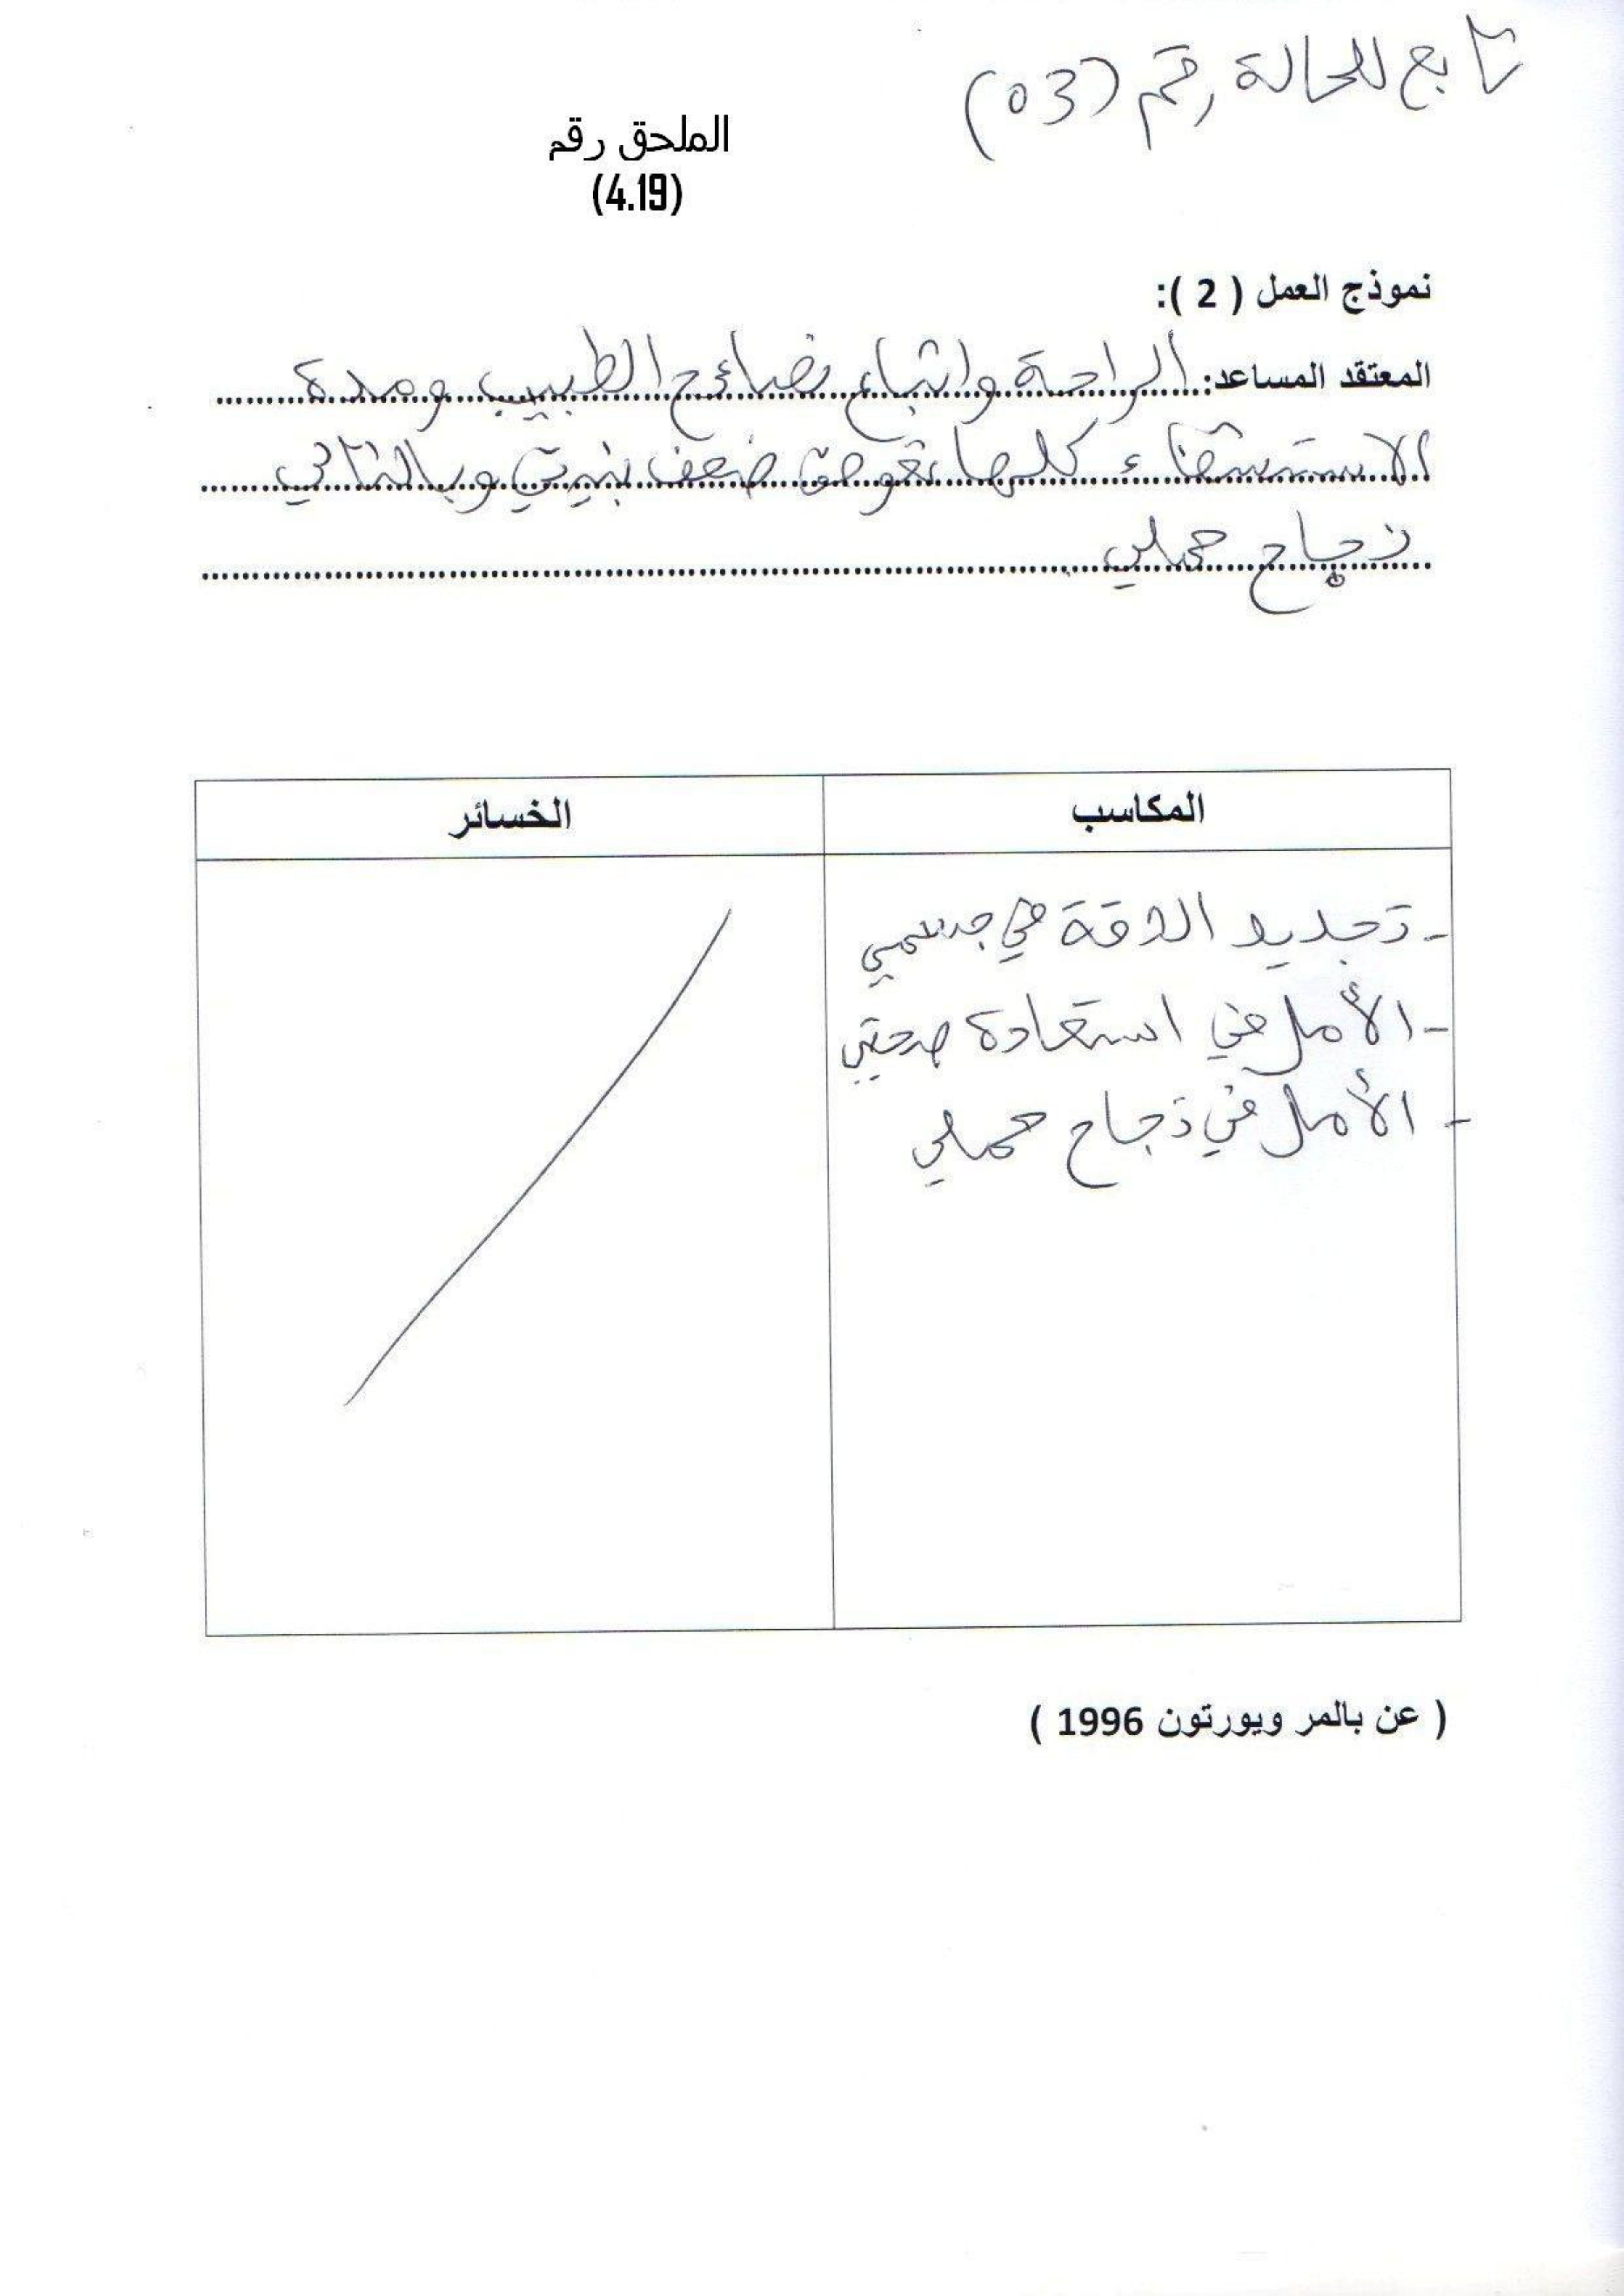 تابع للحالة رقم (03)
الملحق رقم
(4.19)
نموذج العمل ( 2 ):
المعتقد المساعد: الراحة واتباع نصائح الطبيب ومدة
الاستشفاء كلها تعوض ضعف بنيتي وبالتالي
نجاح حملي
المكاسب
الخسائر
- تجديد الثقة في جسمي
- الأمل في استعادة صحتي
- الأمل في نجاح حملي
( عن بالمر ويورتون 1996 )